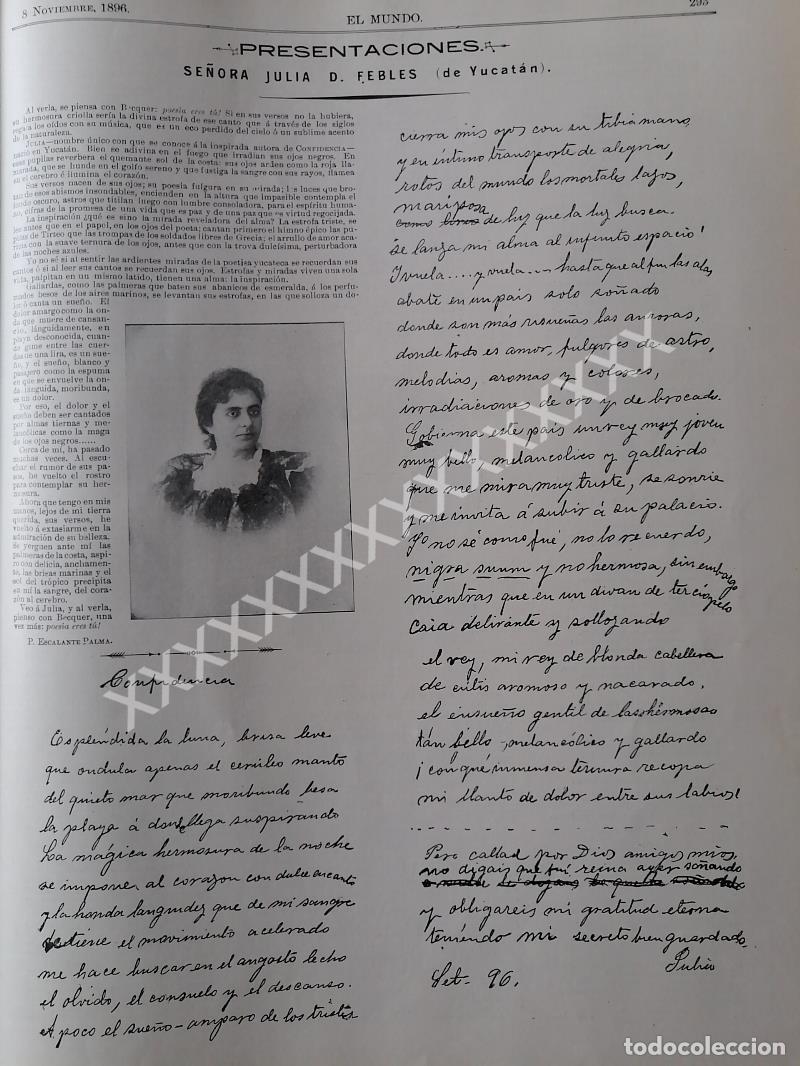 8 NOVIEMBRE, 1896.
EL MUNDO.
295
PRESENTACIONES.
SEÑORA JULIA D. FEBLES (de Yucatán).
Al verla, se piensa con Becquer: poesía eres tú! Si en sus versos no la hubiera,
su hermosura criolla sería la divina estrofa de ese canto que á través de los siglos
llega á los oídos con su música, que es un eco perdido del cielo ó un sublime acento
de la naturaleza.
JULIA—nombre único con que se conoce á la inspirada autora de CONFIDENCIA—
nació en Yucatán. Bien se adivina en el fuego que irradian sus ojos negros. En
sus pupilas reverbera el quemante sol de la costa: sus ojos arden como la roja lla-
marada, que se hunde en el golfo sereno y que fustiga la sangre con sus rayos, flamea
en el cerebro é ilumina el corazón.
Sus versos nacen de sus ojos; su poesía fulgura en su mirada; las luces que bro-
tan de esos abismos insondables, encienden en la altura que impasible contempla el
mundo oscuro, astros que titilan luego con lumbre consoladora, para el espíritu huma-
no, cifras de la promesa de una vida que es paz y de una paz que es virtud regocijada.
La inspiración ¿qué es sino la mirada reveladora del alma? La estrofa triste, se
lee antes que en el papel, en los ojos del poeta; cantan primero el himno épico las pu-
pilas de Tirteo que las trompas de los soldados libres de Grecia; el arrullo de amor can-
ta con la suave ternura de los ojos, antes que con la trova dulcísima, perturbadora
de las noches azules.
Yo no sé si al sentir las ardientes miradas de la poetisa yucateca se recuerdan sus
cantos ó si al leer sus cantos se recuerdan sus ojos. Estrofas y miradas viven una sola
vida, palpitan en un mismo latido, tienen una alma: la inspiración.
Gallardas, como las palmeras que baten sus abanicos de esmeralda, á los perfu-
mados besos de los aires marinos, se levantan sus estrofas, en las que solloza un do-
lor ó canta un sueño. El
dolor amargo como la on-
da que muere de cansan-
cio, lánguidamente, en
playa desconocida, cuan-
do gime entre las cuer-
das de una lira, es un sue-
ño, y el sueño, blanco y
pasajero como la espuma
en que se envuelve la on-
da lánguida, moribunda,
es un dolor.
Por eso, el dolor y el
sueño deben ser cantados
por almas tiernas y me-
lancólicas como la maga
de los ojos negros......
Cerca de mí, ha pasado
muchas veces. Al escu-
char el rumor de sus pa-
sos, he vuelto el rostro
para contemplar su her-
mosura.
Ahora que tengo en mis
manos, lejos de mi tierra
querida, sus versos, he
vuelto á extasiarme en la
admiración de su belleza.
Se yerguen ante mí las
palmeras de la costa, aspi-
ro con delicia, anchamen-
te, las brisas marinas y el
sol del trópico precipita
en mí la sangre, del cora-
zón al cerebro.
Veo á Julia, y al verla,
pienso con Becquer, una
vez más: poesía eres tú!
P. ESCALANTE PALMA.
Confidencia
Espléndida la luna, brisa leve
que ondula apenas el cerúleo manto
del quieto mar que moribundo besa
la playa á donde llega suspirando
La mágica hermosura de la noche
se impone al corazon con dulce encanto
y la honda languidez que de mi sangre
detiene el movimiento acelerado
me hace buscar en el angosto lecho
el olvido, el consuelo y el descanso.
A poco el sueño - amparo de los tristes
cierra mis ojos con su tibia mano
y en íntimo transporte de alegria,
rotos del mundo los mortales lazos,
mariposa
como de luz que la luz busca.
se lanza mi alma al infinito espacio!
I vuela.... y vuela... hasta que al fin las alas
abate en un pais solo soñado
donde son más risueñas las auroras,
donde todo es amor, fulgores de astro,
melodias, aromas y colores,
irradiaciones de oro y de brocado.
Gobierna este pais un rey muy joven
muy bello, melancólico y gallardo
que me mira muy triste, se sonrie
y me invita á subir á su palacio.
Yo no sé como fué, no lo recuerdo,
nigra suum y no hermosa, sin embargo
mientras que en un divan de terciopelo
caia delirante y sollozando
el rey, mi rey de blonda cabellera
de cutis aromoso y nacarado,
el ensueño gentil de las hermosas
tán bello, melancólico y gallardo
¡con qué inmensa ternura recogia
mi llanto de dolor entre sus labios!
Pero callad por Dios amigos mios,
no digais que fuí reina ayer soñando
y obligareis mi gratitud eterna
teniendo mi secreto bien guardado.
Julia
Set- 96.
XXXXXXXXXXXXXXXXXX
todocoleccion